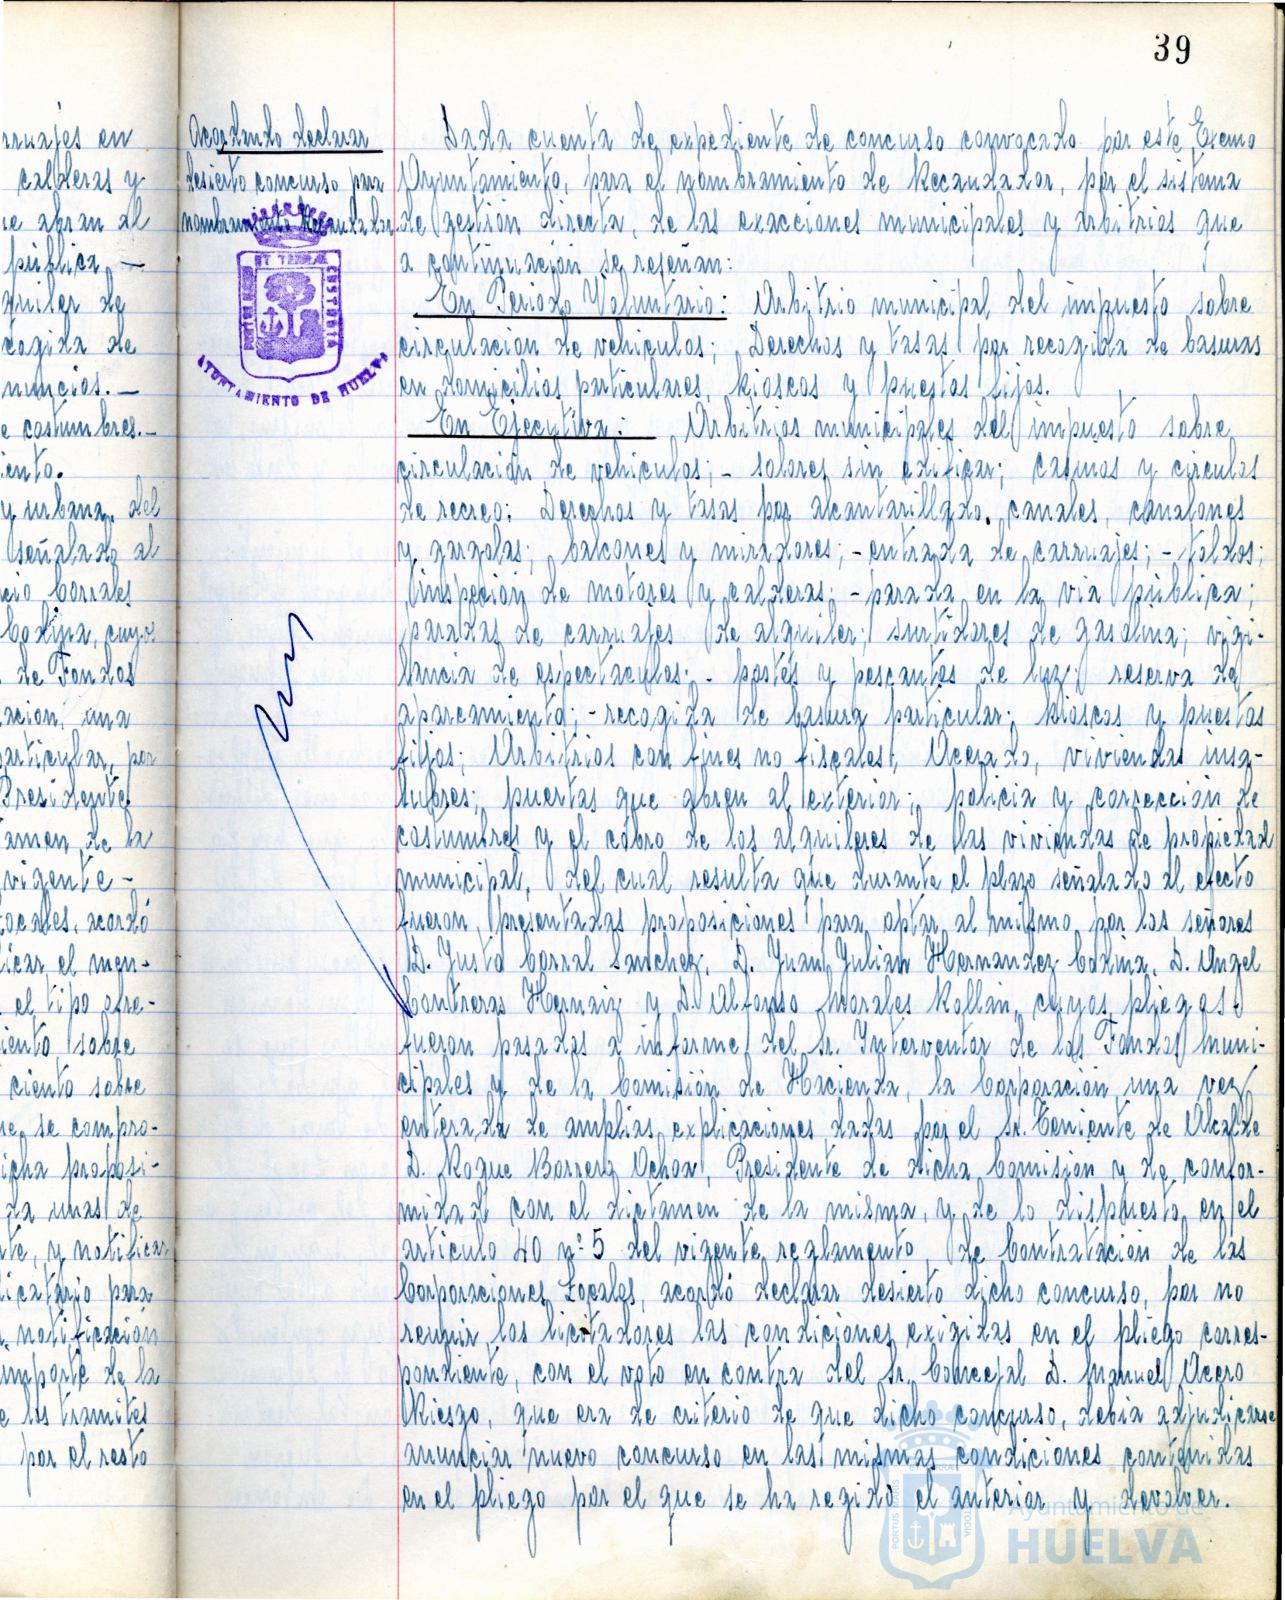 39
rruajes en
calderas y
ue abran al
pública —
quiler de
cogida de
nuncios. —
e costumbres.-
iento.
y urbana, del
señalado al
cio Corrales
Codina, cuyos
de Fondos
acion, una
particular, por
Presidente
tamen de la
vigente -
Locales, acordó
licar el men-
el tipo ofre-
iento sobre
ciento sobre
ue se compro-
icha proposi-
da unas de
nte, y notificar
icatario para
notificación
importe de la
e los tramites
por el resto
Acordando declarar
desierto concurso para
nombramiento Recaudador
ET TERRAE
PORTUS MARIS
CUSTODIA
AYUNTAMIENTO DE HUELVA
Dada cuenta de expediente de concurso convocado por este Excmo
Ayuntamiento, para el nombramiento de Recaudador, por el sistema
de gestión directa, de las exacciones municipales y arbitrios que
a continuación se reseñan:
En Periodo Voluntario: Arbitrio municipal del impuesto sobre
circulacion de vehiculos; Derechos y tasas por recogida de basuras
en domicilios particulares, kioscos y puestos fijos.
En Ejecutiva: Arbitrios municipales del impuesto sobre
circulación de vehiculos; - solares sin edificar; casinos y circulos
de recreo: Derechos y tasas por alcantarillado. canales, canalones
y gargolas; balcones y miradores; - entrada de carruajes; - toldos;
inspeción de motores y calderas; - parada en la via pública;
paradas de carruajes de alquiler; surtidores de gasolina; vigi-
lancia de espectaculos; - postes y pescantes de luz; reserva de
aparcamiento; - recogida de basura particular; kioscos y puestos
fijos; Arbitrios con fines no fiscales; Acerado, viviendas insa-
lubres; puertas que abren al exterior; policia y corrección de
costumbres y el cobro de los alquileres de las viviendas de propiedad
municipal, del cual resulta que durante el plazo señalado al efecto
fueron presentadas proposiciones para optar al mismo por los señores
D. Justo Corral Sanchez, D. Juan Julian Hernandez Codina, D. Angel
Contreras Hernaiz y D. Alfonso Morales Rollán, cuyos pliegos
fueron pasados a informe del Sr. Interventor de los Fondos Muni-
cipales y de la Comisión de Hacienda, la Corporación una vez
enterada de amplias explicaciones dadas por el Sr. Teniente de Alcalde
D. Roque Barrera Ochoa, Presidente de dicha Comisión y de confor-
midad con el dictamen de la misma, y de lo dispuesto en el
articulo 40 nº 5 del vigente reglamento de Contratación de las
Corporaciones Locales, acordó declarar desierto dicho concurso, por no
reunir los licitadores las condiciones exigidas en el pliego corres-
pondiente, con el voto en contra del Sr. Concejal D. Manuel Acero
Riesgo, que era de criterio de que dicho concurso, debia adjudicarse
anunciar nuevo concurso en las mismas condiciones contenidas
en el pliego por el que se ha regido el anterior y devolver.
PORTUS MARIS
CUSTODIA
Ayuntamiento de
HUELVA